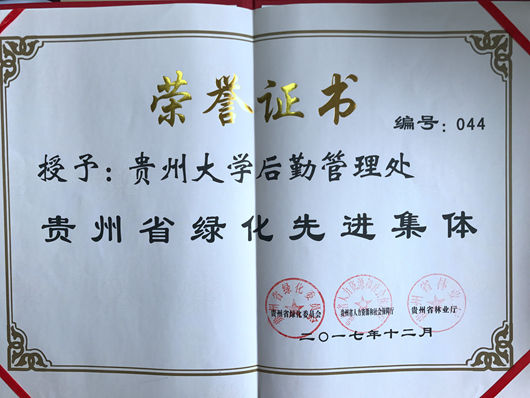 荣誉证书
编号：044
授予：贵州大学后勤管理处
贵州省绿化先进集体
贵州省绿化委员会 贵州省人力资源和社会保障厅 贵州省林业厅
二〇一七年十二月